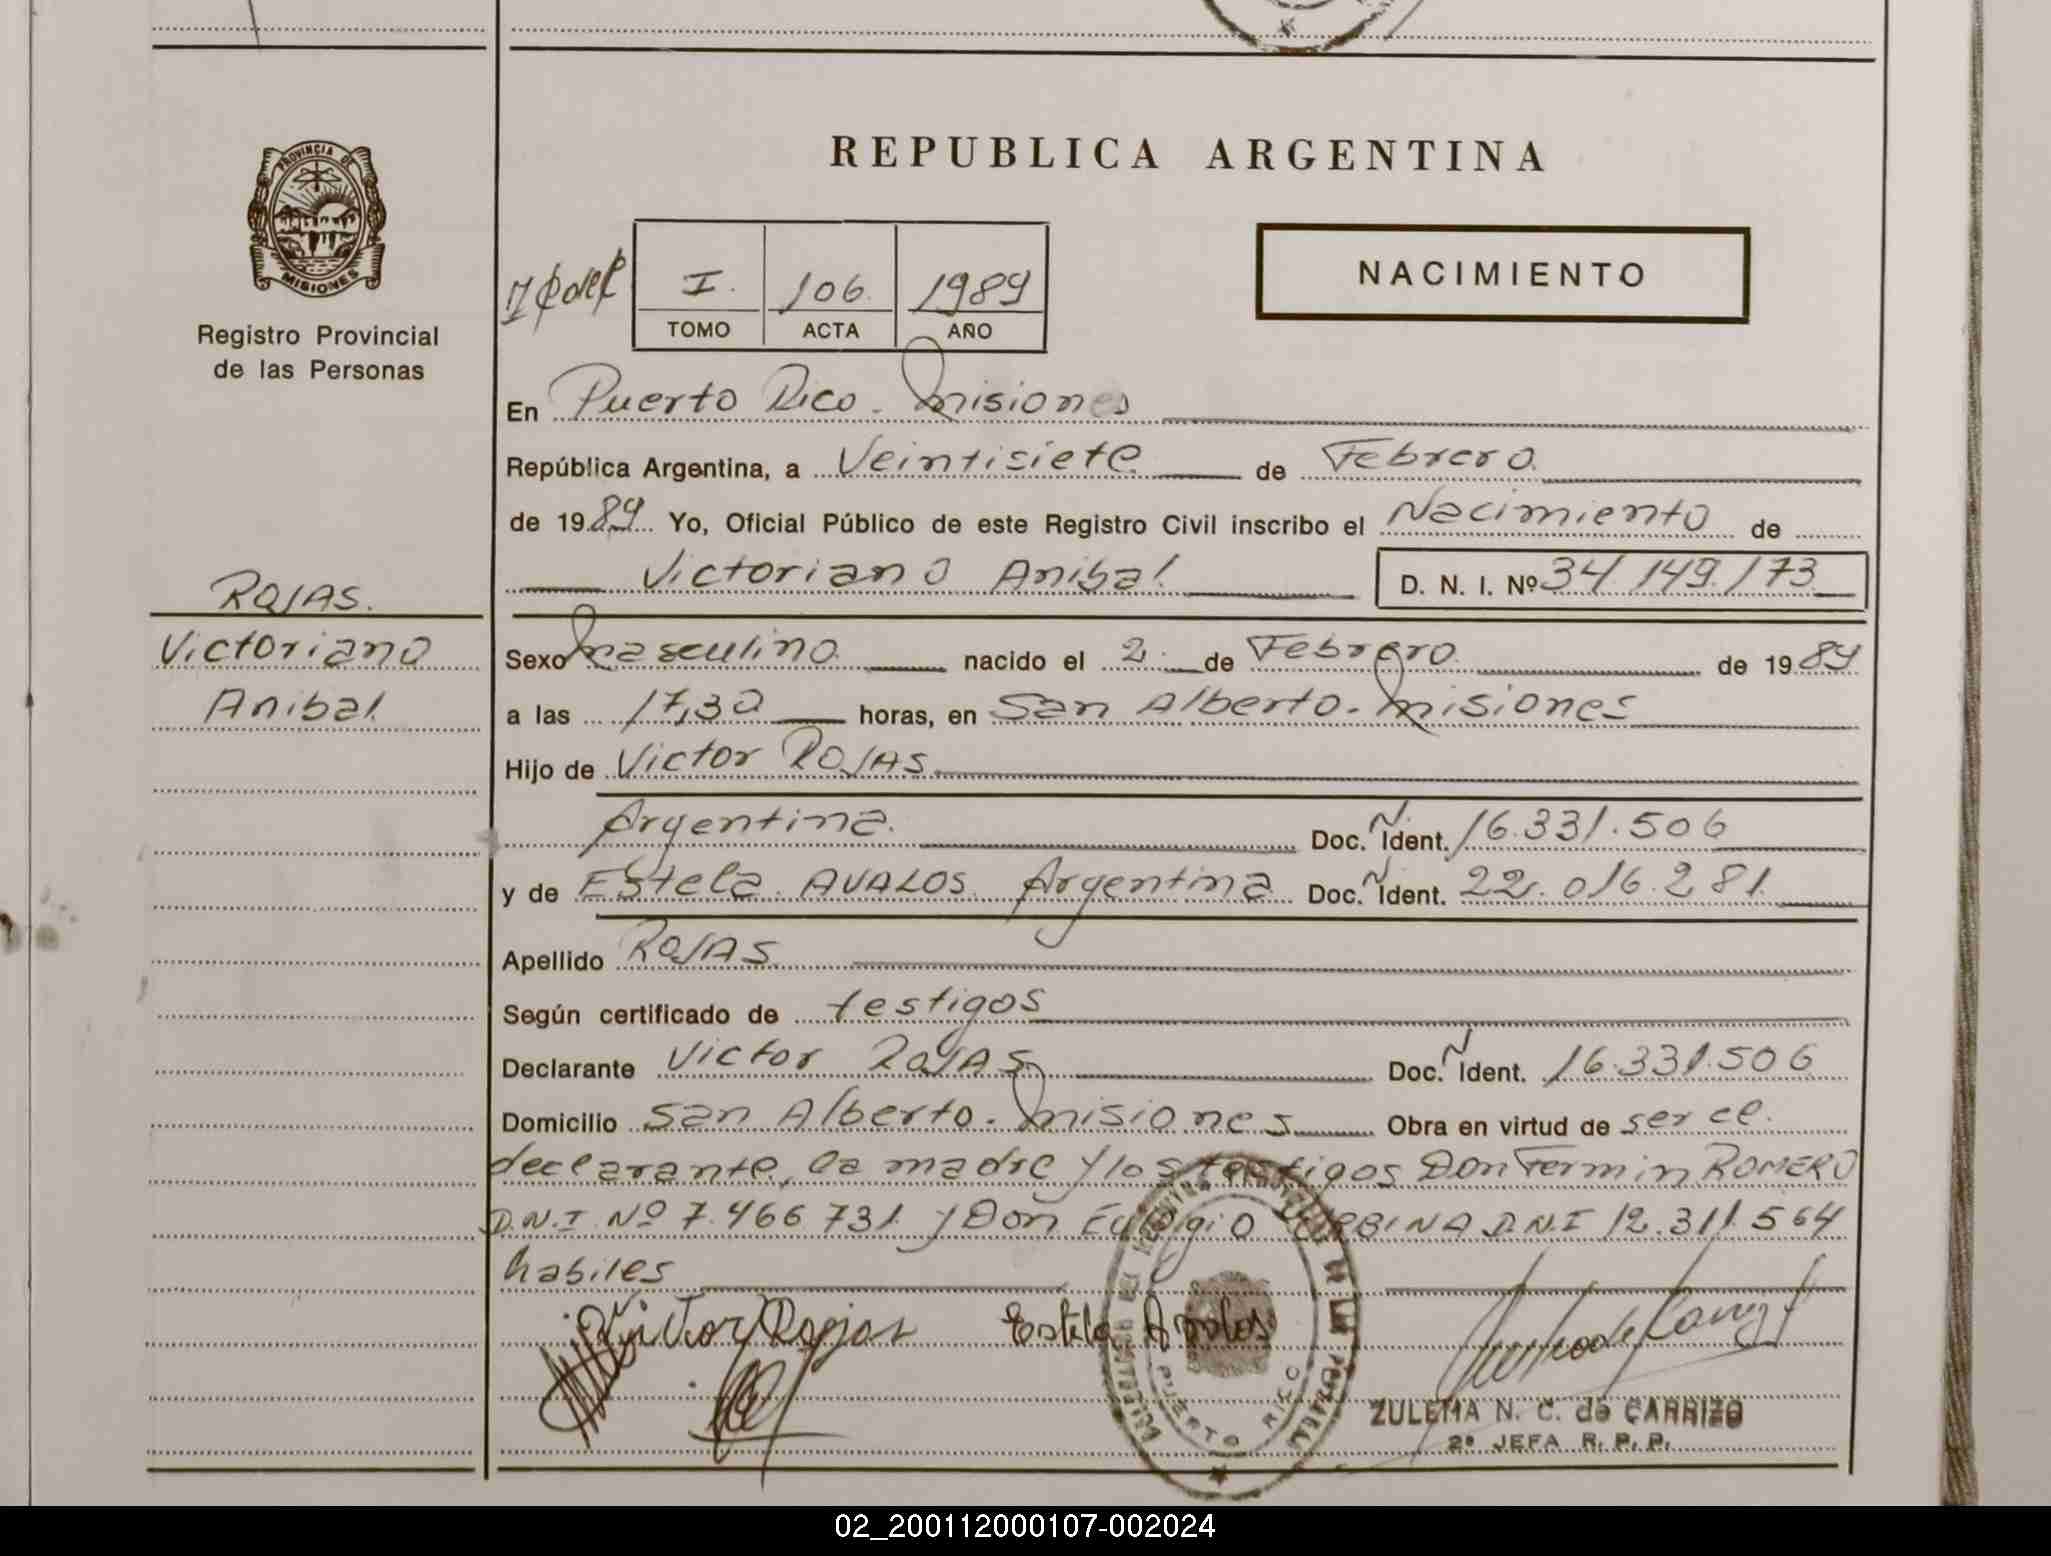 PROVINCIA DE
MISIONES
Registro Provincial
de las Personas
ROJAS.
Victoriano
Anibal
REPUBLICA ARGENTINA
I. 106. 1989
TOMO ACTA AÑO
NACIMIENTO
En Puerto Rico. Misiones
República Argentina, a Veintisiete de Febrero.
de 1989 Yo, Oficial Público de este Registro Civil inscribo el Nacimiento de
Victoriano Anibal D. N. I. Nº 34.149.173
Sexo Masculino nacido el 2. de Febrero de 1989
a las 17,30 horas, en San Alberto. Misiones
Hijo de Victor ROJAS.
Argentina. Doc. N. Ident. 16.331.506
y de Estela AVALOS. Argentina Doc. N Ident. 22.016.281.
Apellido ROJAS.
Según certificado de testigos
Declarante Victor ROJAS. Doc. N Ident. 16.331.506
Domicilio San Alberto. Misiones Obra en virtud de ser el
declarante, la madre y los testigos Don Fermin ROMERO
D.N.I Nº 7.466.731. y Don Eulogio URBINA D.N.I 12.311.564
habiles
Victor Rojas Estela Avalos
PUERTO RICO
ZULEMA N. C. de CARRIZO
2ª JEFA R. P. P.
02_200112000107-002024